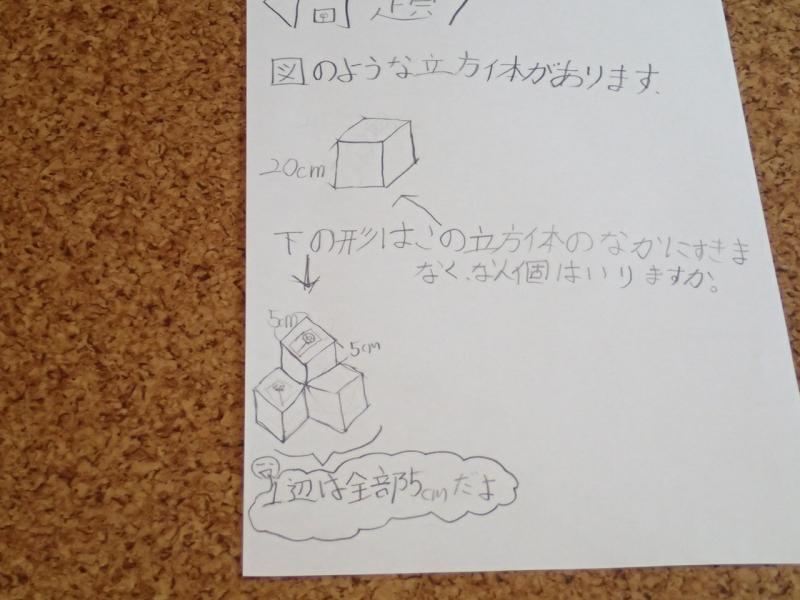 〈問題〉
図のような立方体があります.
20cm
下の形はこの立方体のなかにすきま
なく、なん個はいりますか。
5cm
5cm
1辺は全部5cmだよ